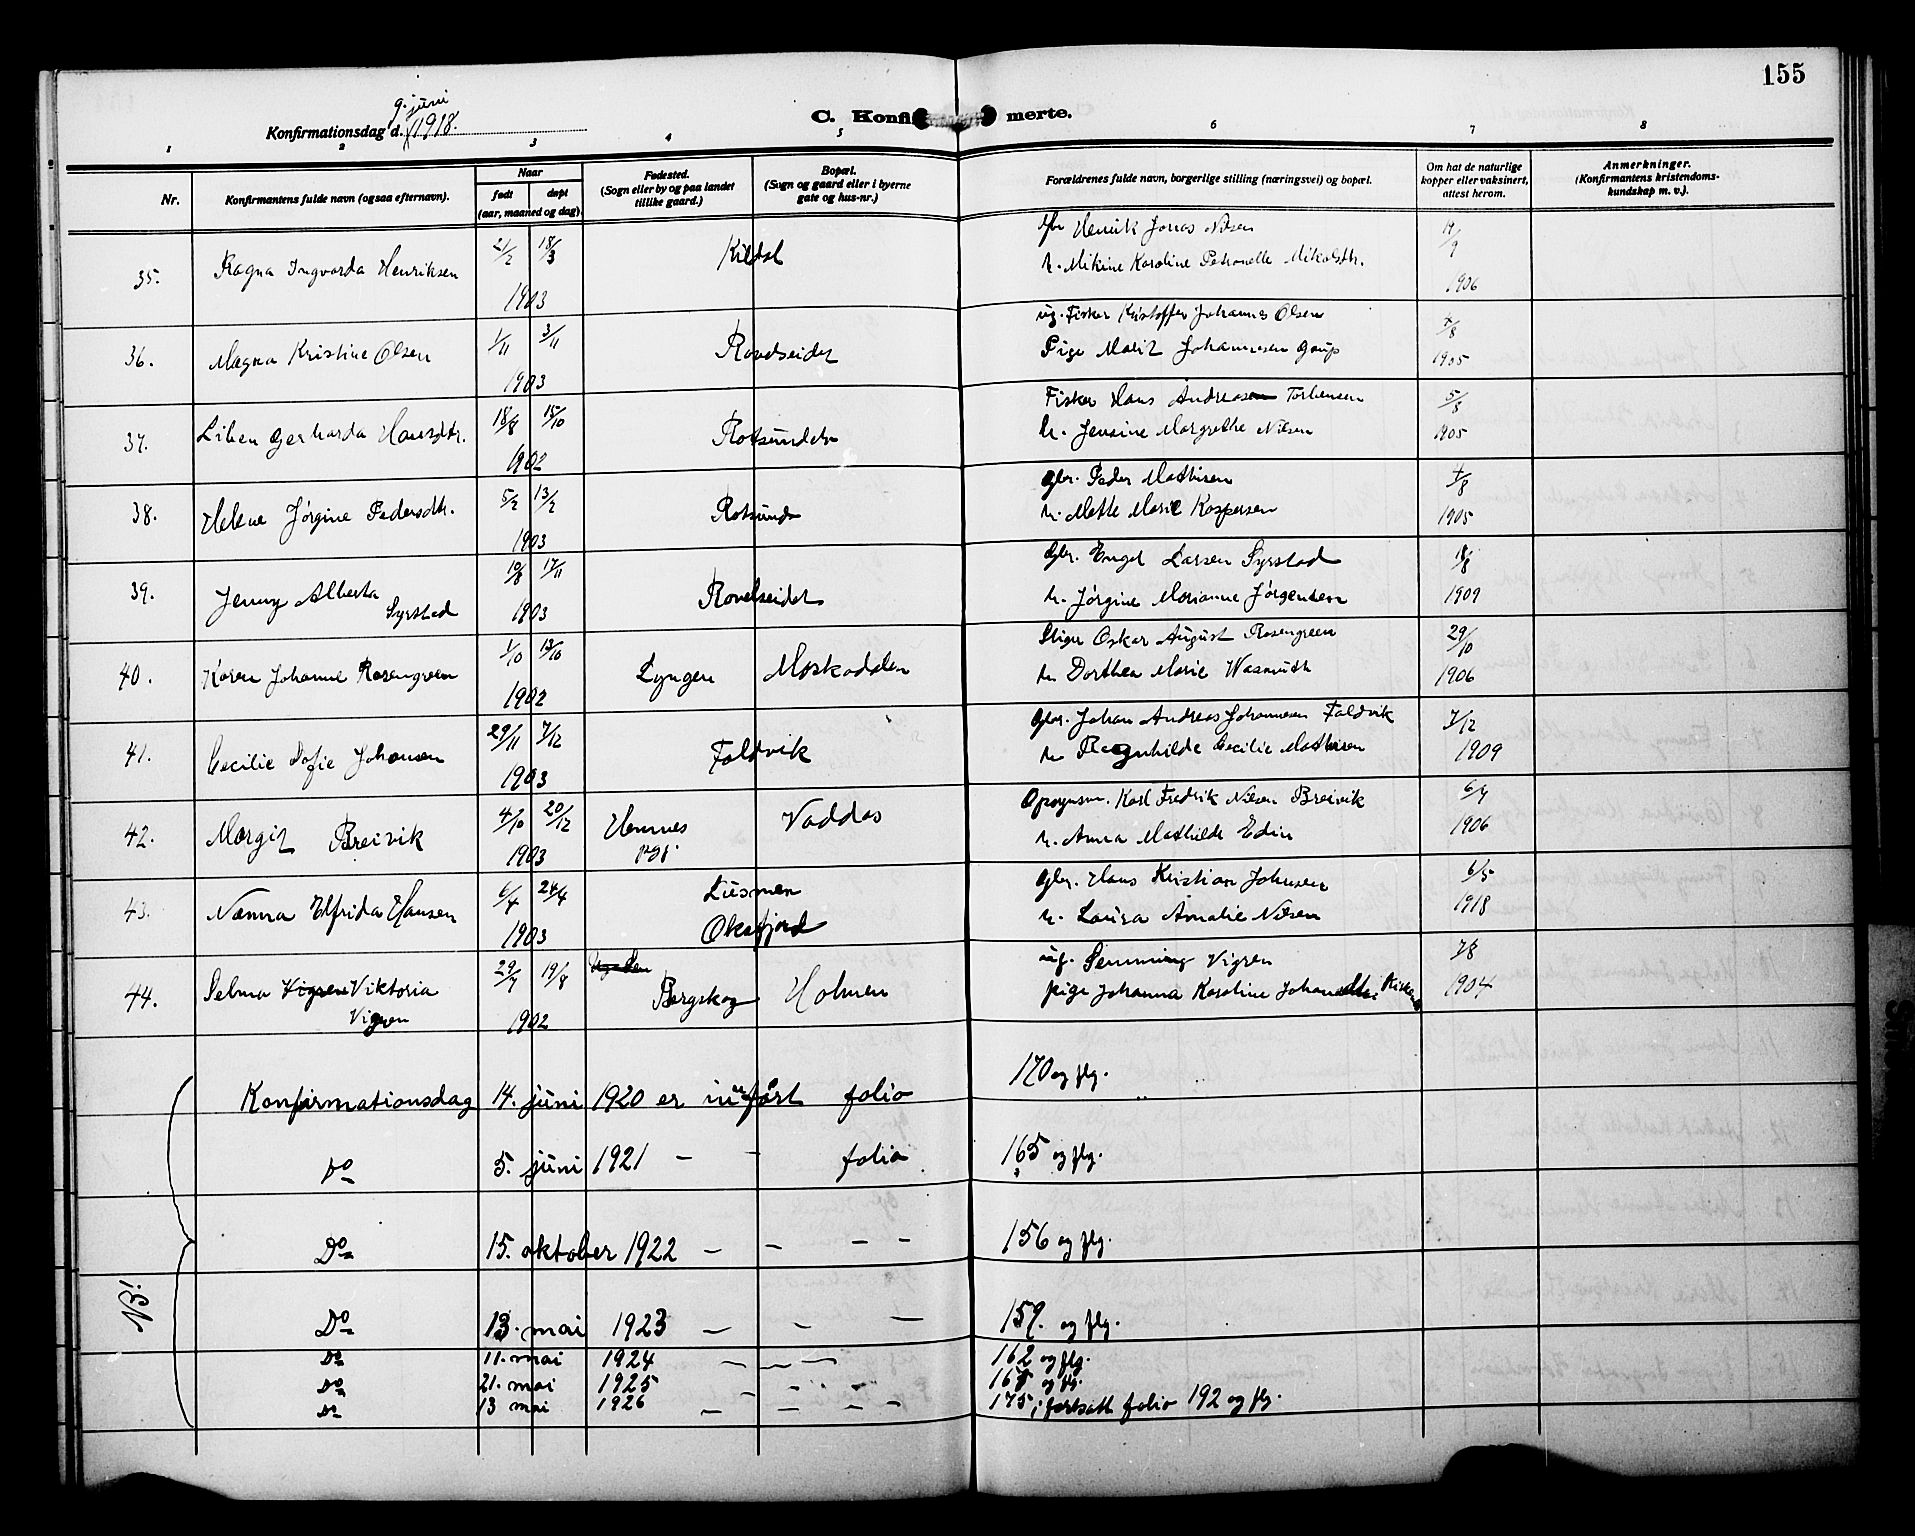 155
9. juni
Konfirmationsdag d. 1918.
C. Konfi merte.
1 2 3 4 5 6 7 8
Nr.
Konfirmantens fulde navn (ogsaa efternavn).
Naar
født døpt
(aar, maaned og dag)
Fødested.
(Sogn eller by og paa landet
tillike gaard.)
Bopæl.
(Sogn og gaard eller i byerne
gate og hus-nr.)
Forældrenes fulde navn, borgerlige stilling (næringsvei) og bopæl.
Om hat de naturlige
kopper eller vaksinert,
attest herom.
Anmerkninger.
(Konfirmantens kristendoms-
kundskap m. v.).
35. Ragna Ingvarda Henriksen 21/2 18/3 1903 Kildal
Gbr Henrik Jonas Nilsen 14/9
h. Mikine Karoline Petronelle Mikalsdtr. 1906
36. Magna Kristine Olsen 1/11 3/11 1903 Ravelseidet
ug. Fisker Kristoffer Johannes Olsen
Pige Marit Johannesen Gaup 1905
37. Liken Gerharda Hansdtr. 18/8 15/10 1902 Rotsundelv
Fisker Hans Andreasen Torbensen 5/8
h. Jensine Margrethe Nilsen 1905
38. Helene Jørgine Pedersdtr. 5/2 13/2 1903 Rotsund
Gbr. Peder Mathisen
h. Mette Marie Kaspersen 1905
39. Jenny Alberta Syrstad 10/8 17/11 1903 Ravelseidet
Gbr. Engel Larsen Syrstad 18/8
h. Jørgine Marianne Jørgensen 1909
40. Karen Johanne Rosengreen 1/10 12/10 1902 Lyngen Moskodalen
Stiger Oskar August Rosengreen 29/10
h. Dorthea Marie Wasmuth 1906
41. Cecilie Sofie Johansen 29/11 7/12 1903 Faldvik
Gbr. Johan Andreas Johannesen Faldvik 7/12
h. Ragnhilde Cecilie Mathisen 1909
42. Margit Breivik 4/10 20/12 1903 Hennes pgj. Vaddas
Opsynsm. Karl Fredrik Nilsen Breivik 6/7
h. Anna Mathilde Edin 1906
43. Nanna Elfrida Hansen 6/4 24/4 1903 Lusmen
Oksfjord
Gbr. Hans Kristian Johnsen 6/5
h. Laura Amalie Nilsen 1918
44. Selma Vigren Viktoria 29/7 19/8 1902 Bergskog Holmen
Vigren
ug. Semming Vigren 7/8
pige Johanna Karoline Johansdtr. 1904
NB!
Konfirmationsdag 14. juni 1920 er innført folio 170 og flg.
Do 5. juni 1921 - - folio 165 og flg.
Do 15. oktober 1922 - - - - 156 og flg.
Do 13. mai 1923 - - - 159. og flg.
Do 11. mai 1924 - - - 162 og flg.
Do 21. mai 1925 - - - og flg.
Do 13 mai 1926 - - - - 175, fortsatt folio 192 og flg.